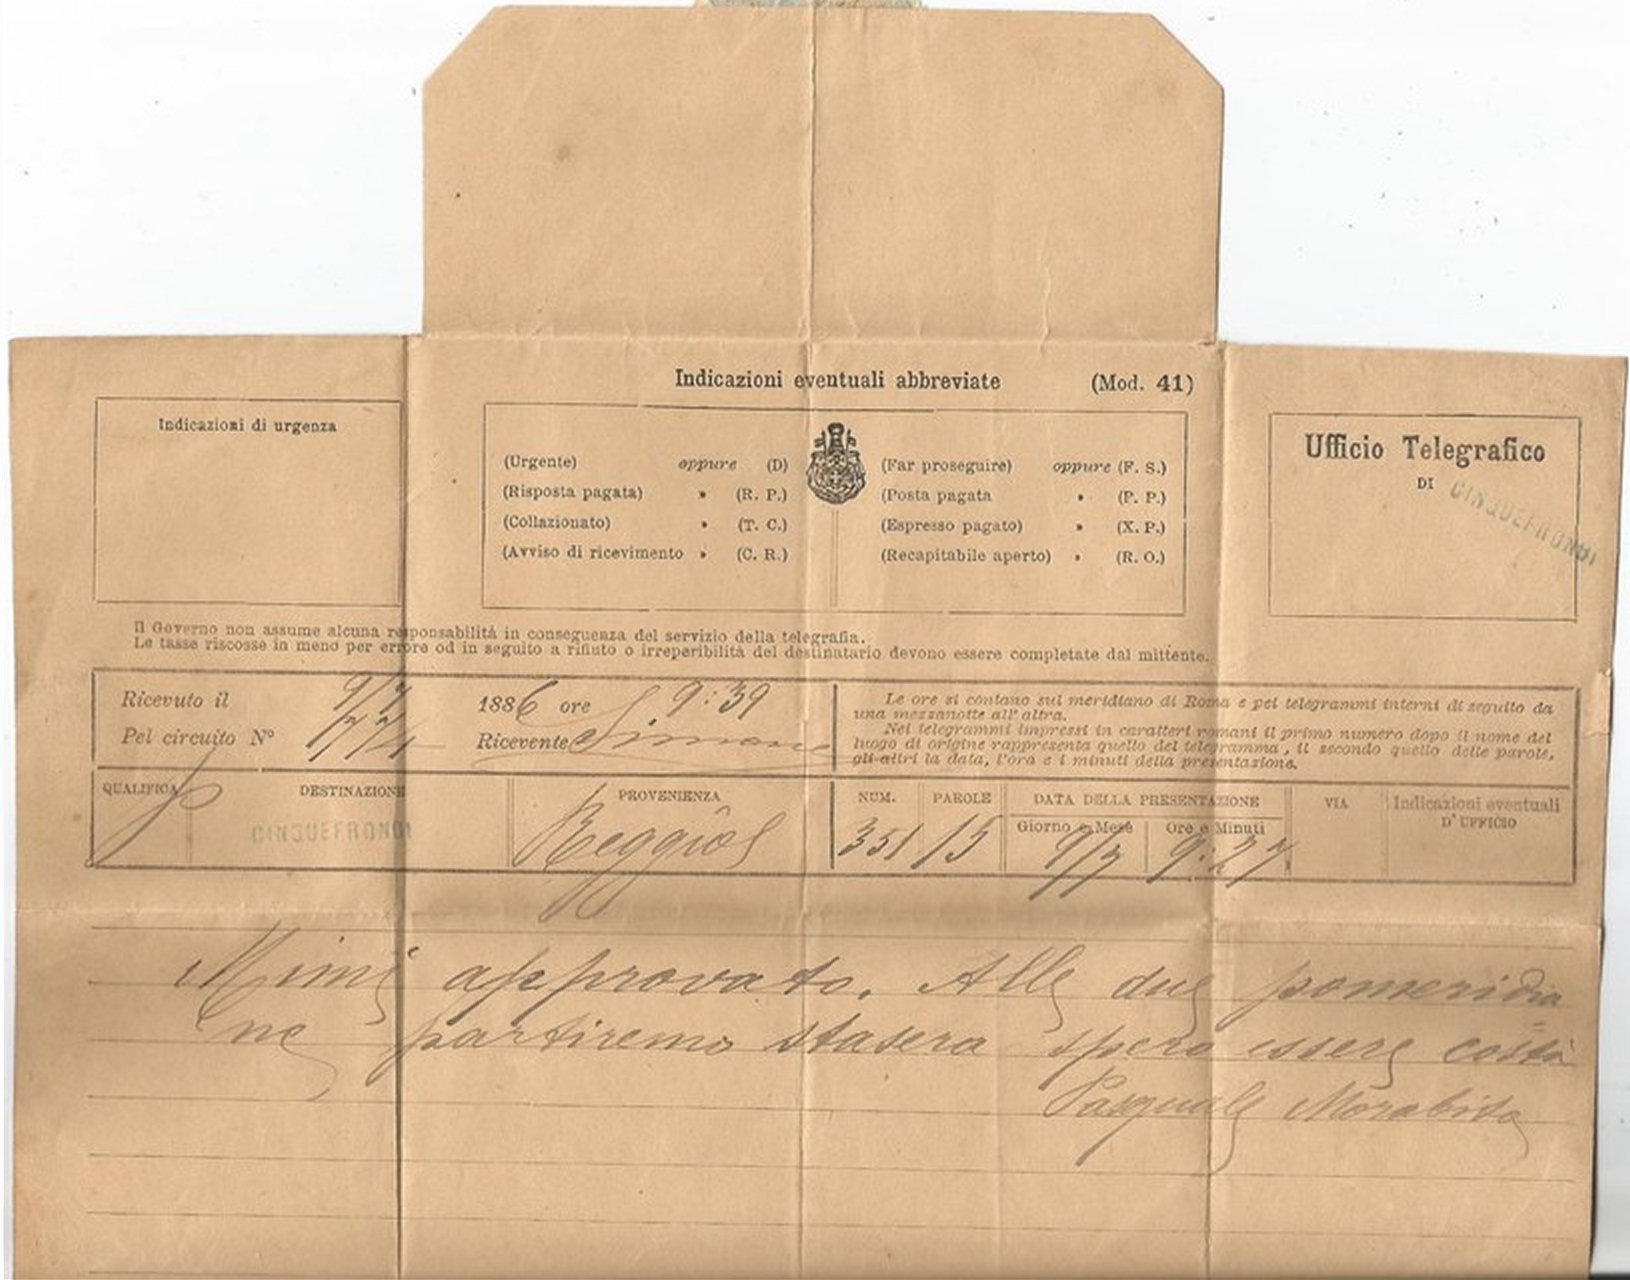 Indicazioni eventuali abbreviate (Mod. 41)
Indicazioni di urgenza
(Urgente) oppure (D)
(Risposta pagata) » (R. P.)
(Collazionato) » (T. C.)
(Avviso di ricevimento » (C. R.)
(Far proseguire) oppure (F. S.)
(Posta pagata » (P. P.)
(Espresso pagato) » (X. P.)
(Recapitabile aperto) » (R. O.)
Ufficio Telegrafico
DI CINQUEFRONDI
Il Governo non assume alcuna responsabilità in conseguenza del servizio della telegrafia.
Le tasse riscosse in meno per errore od in seguito a rifiuto o irreperibilità del destinatario devono essere completate dal mittente.
Ricevuto il 9/7 1886 ore 9:39
Pel circuito N° Ricevente Simone
Le ore si contano sul meridiano di Roma e pei telegrammi interni di seguito da
una mezzanotte all'altra.
Nei telegrammi impressi in caratteri romani il primo numero dopo il nome del
luogo di origine rappresenta quello del telegramma, il secondo quello delle parole,
gli altri la data, l'ora e i minuti della presentazione.
QUALIFICA DESTINAZIONE PROVENIENZA NUM. PAROLE DATA DELLA PRESENTAZIONE VIA Indicazioni eventuali
D'UFFICIO
Giorno e Mese Ore e Minuti
CINQUEFRONDI Reggio 351 15 9/7 9:27
Mimì approvato. Alle due pomeridia
ne partiremo stasera spero essere costà
Pasquale Morabito